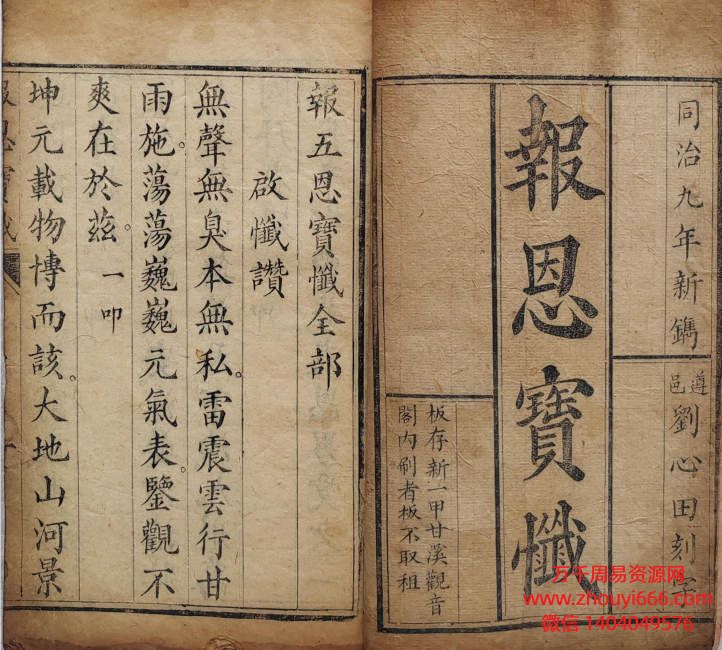 同治九年新鐫
遵邑劉心田刻字
報恩寶懺
板存新一甲甘溪觀音
閣內刷者板不取租
報五恩寶懺全部
啟懺讚
無聲無臭本無私。雷震雲行甘
雨施。蕩蕩巍巍元氣表。鑒觀不
爽在於茲。一叩
坤元載物博而該。大地山河景
報恩寶懺
万千周易资源网
www.zhouyi666.com
微信 1404049576